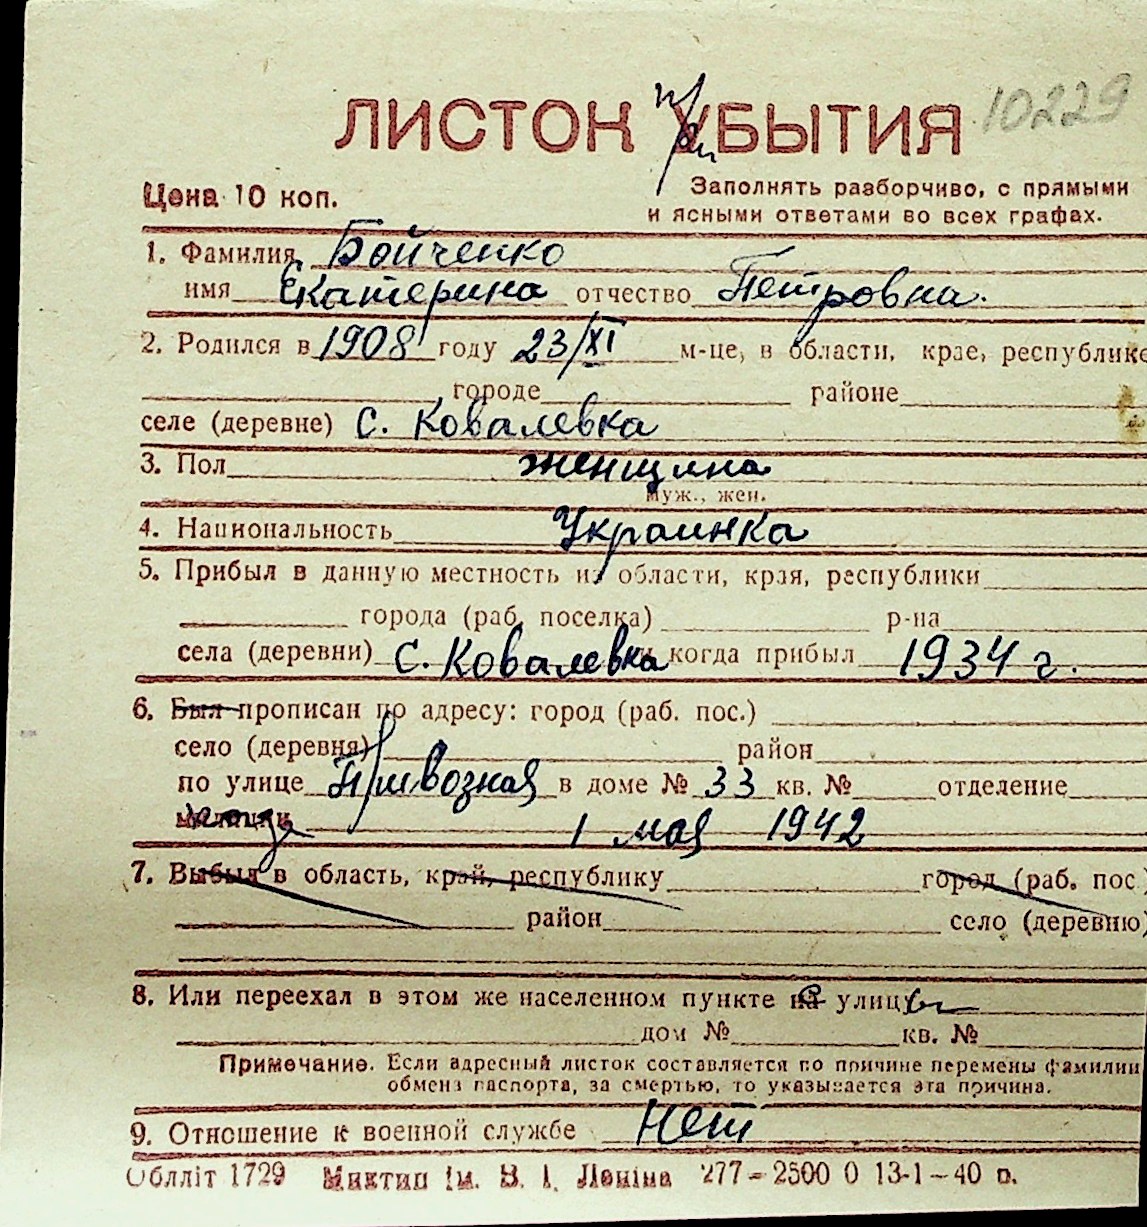 ЛИСТОК при УБЫТИЯ 10229
Цена 10 коп. Заполнять разборчиво, с прямыми
и ясными ответами во всех графах.
1. Фамилия Бойченко
имя Екатерина отчество Петровна.
2. Родился в 1908 году 23/XI м-це, в области, крае, республике
городе районе
селе (деревне) с. Ковалевка
3. Пол женщина
муж., жен.
4. Национальность Украинка
5. Прибыл в данную местность из области, края, республики
города (раб. поселка) р-на
села (деревни) с. Ковалевка и когда прибыл 1934 г.
6. Был прописан по адресу: город (раб. пос.)
село (деревня) район
по улице Привозная в доме № 33 кв. № отделение
милиции 1 мая 1942
7. Выбыл в область, край, республику город (раб. пос.)
район село (деревню)
8. Или переехал в этом же населенном пункте на с улицу ы
дом № кв. №
Примечание. Если адресный листок составляется по причине перемены фамилии
обмена паспорта, за смертью, то указывается эта причина.
9. Отношение к военной службе Нет
Облліт 1729 Миктип ім. В. І. Леніна 277–2500 0 13-1–40 р.